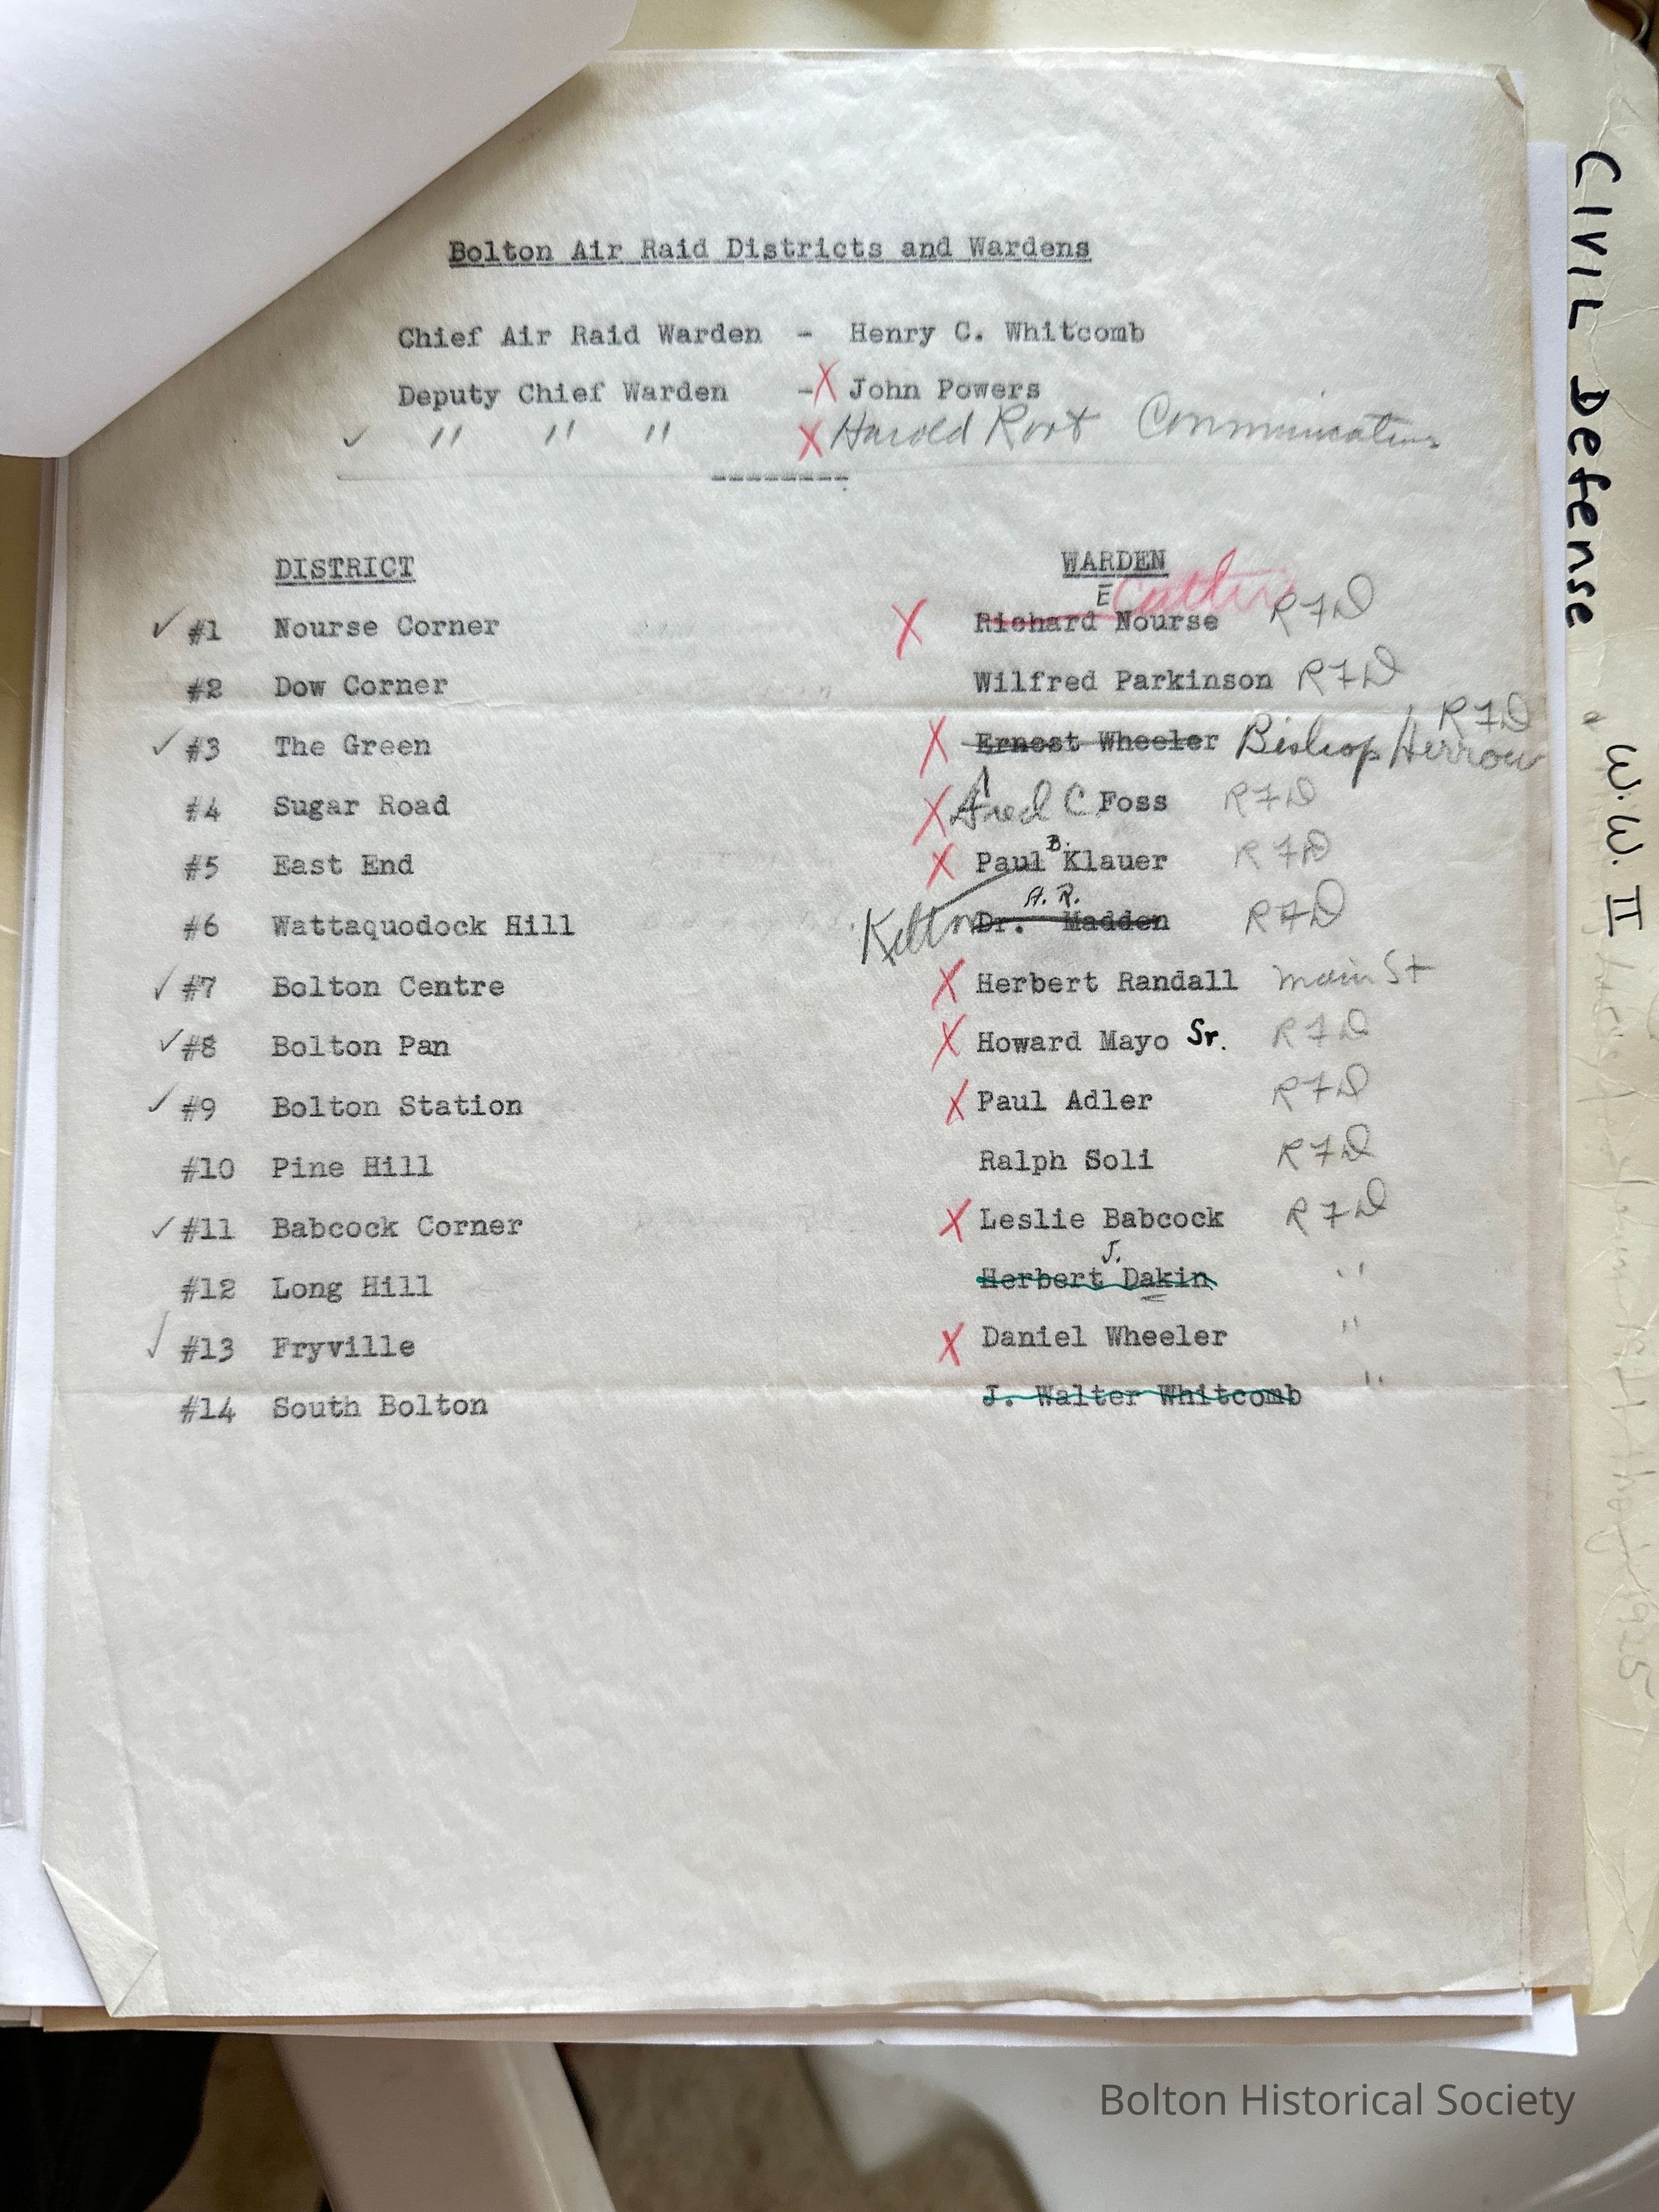 Bolton Air Raid Districts and Wardens
Chief Air Raid Warden - Henry C. Whitcomb
Deputy Chief Warden - X John Powers
✓ " " " X Harold Root Communications
DISTRICT WARDEN
✓ #1 Nourse Corner X Richard E Nourse RFD
#2 Dow Corner Wilfred Parkinson RFD
✓ #3 The Green X Ernest Wheeler Bishop RFD
#4 Sugar Road X Fred C. Foss RFD
#5 East End X Paul B. Klauer RFD
#6 Wattaquodock Hill Dr. A. R. Madden RFD
✓ #7 Bolton Centre X Herbert Randall Main St
✓ #8 Bolton Pan X Howard Mayo Sr. RFD
✓ #9 Bolton Station X Paul Adler RFD
#10 Pine Hill Ralph Soli RFD
✓ #11 Babcock Corner X Leslie Babcock RFD
#12 Long Hill Herbert J. Dakin "
✓ #13 Fryville X Daniel Wheeler "
#14 South Bolton J. Walter Whitcomb "
CIVIL Defense - W.W. II
Bolton Historical Society